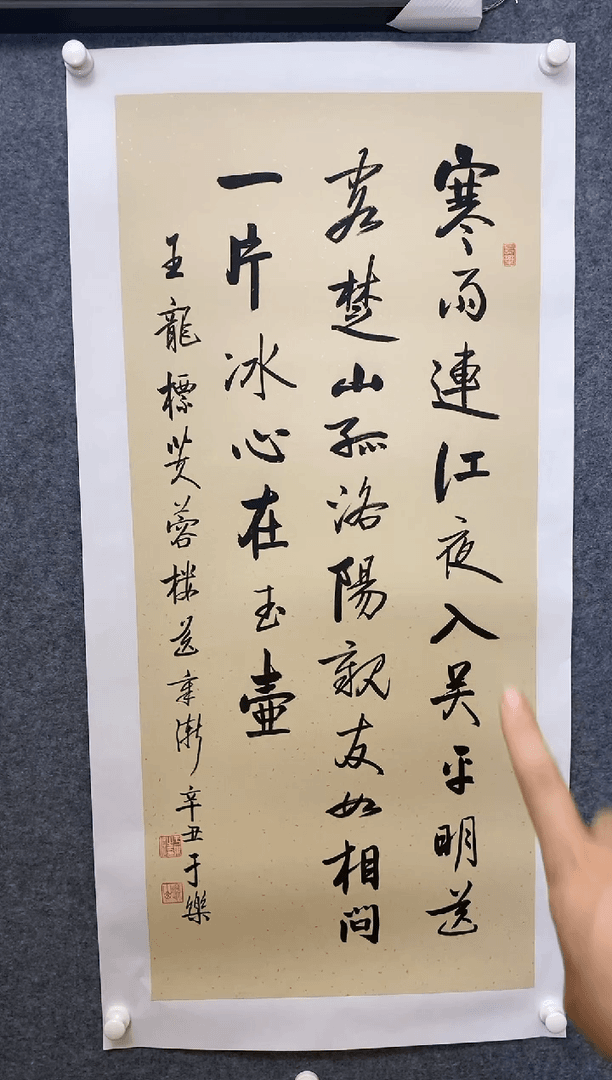 寒雨連江夜入吴平明送
客楚山孤洛陽親友如相問
一片冰心在玉壺
王龍標芙蓉楼送辛漸
辛丑于樂